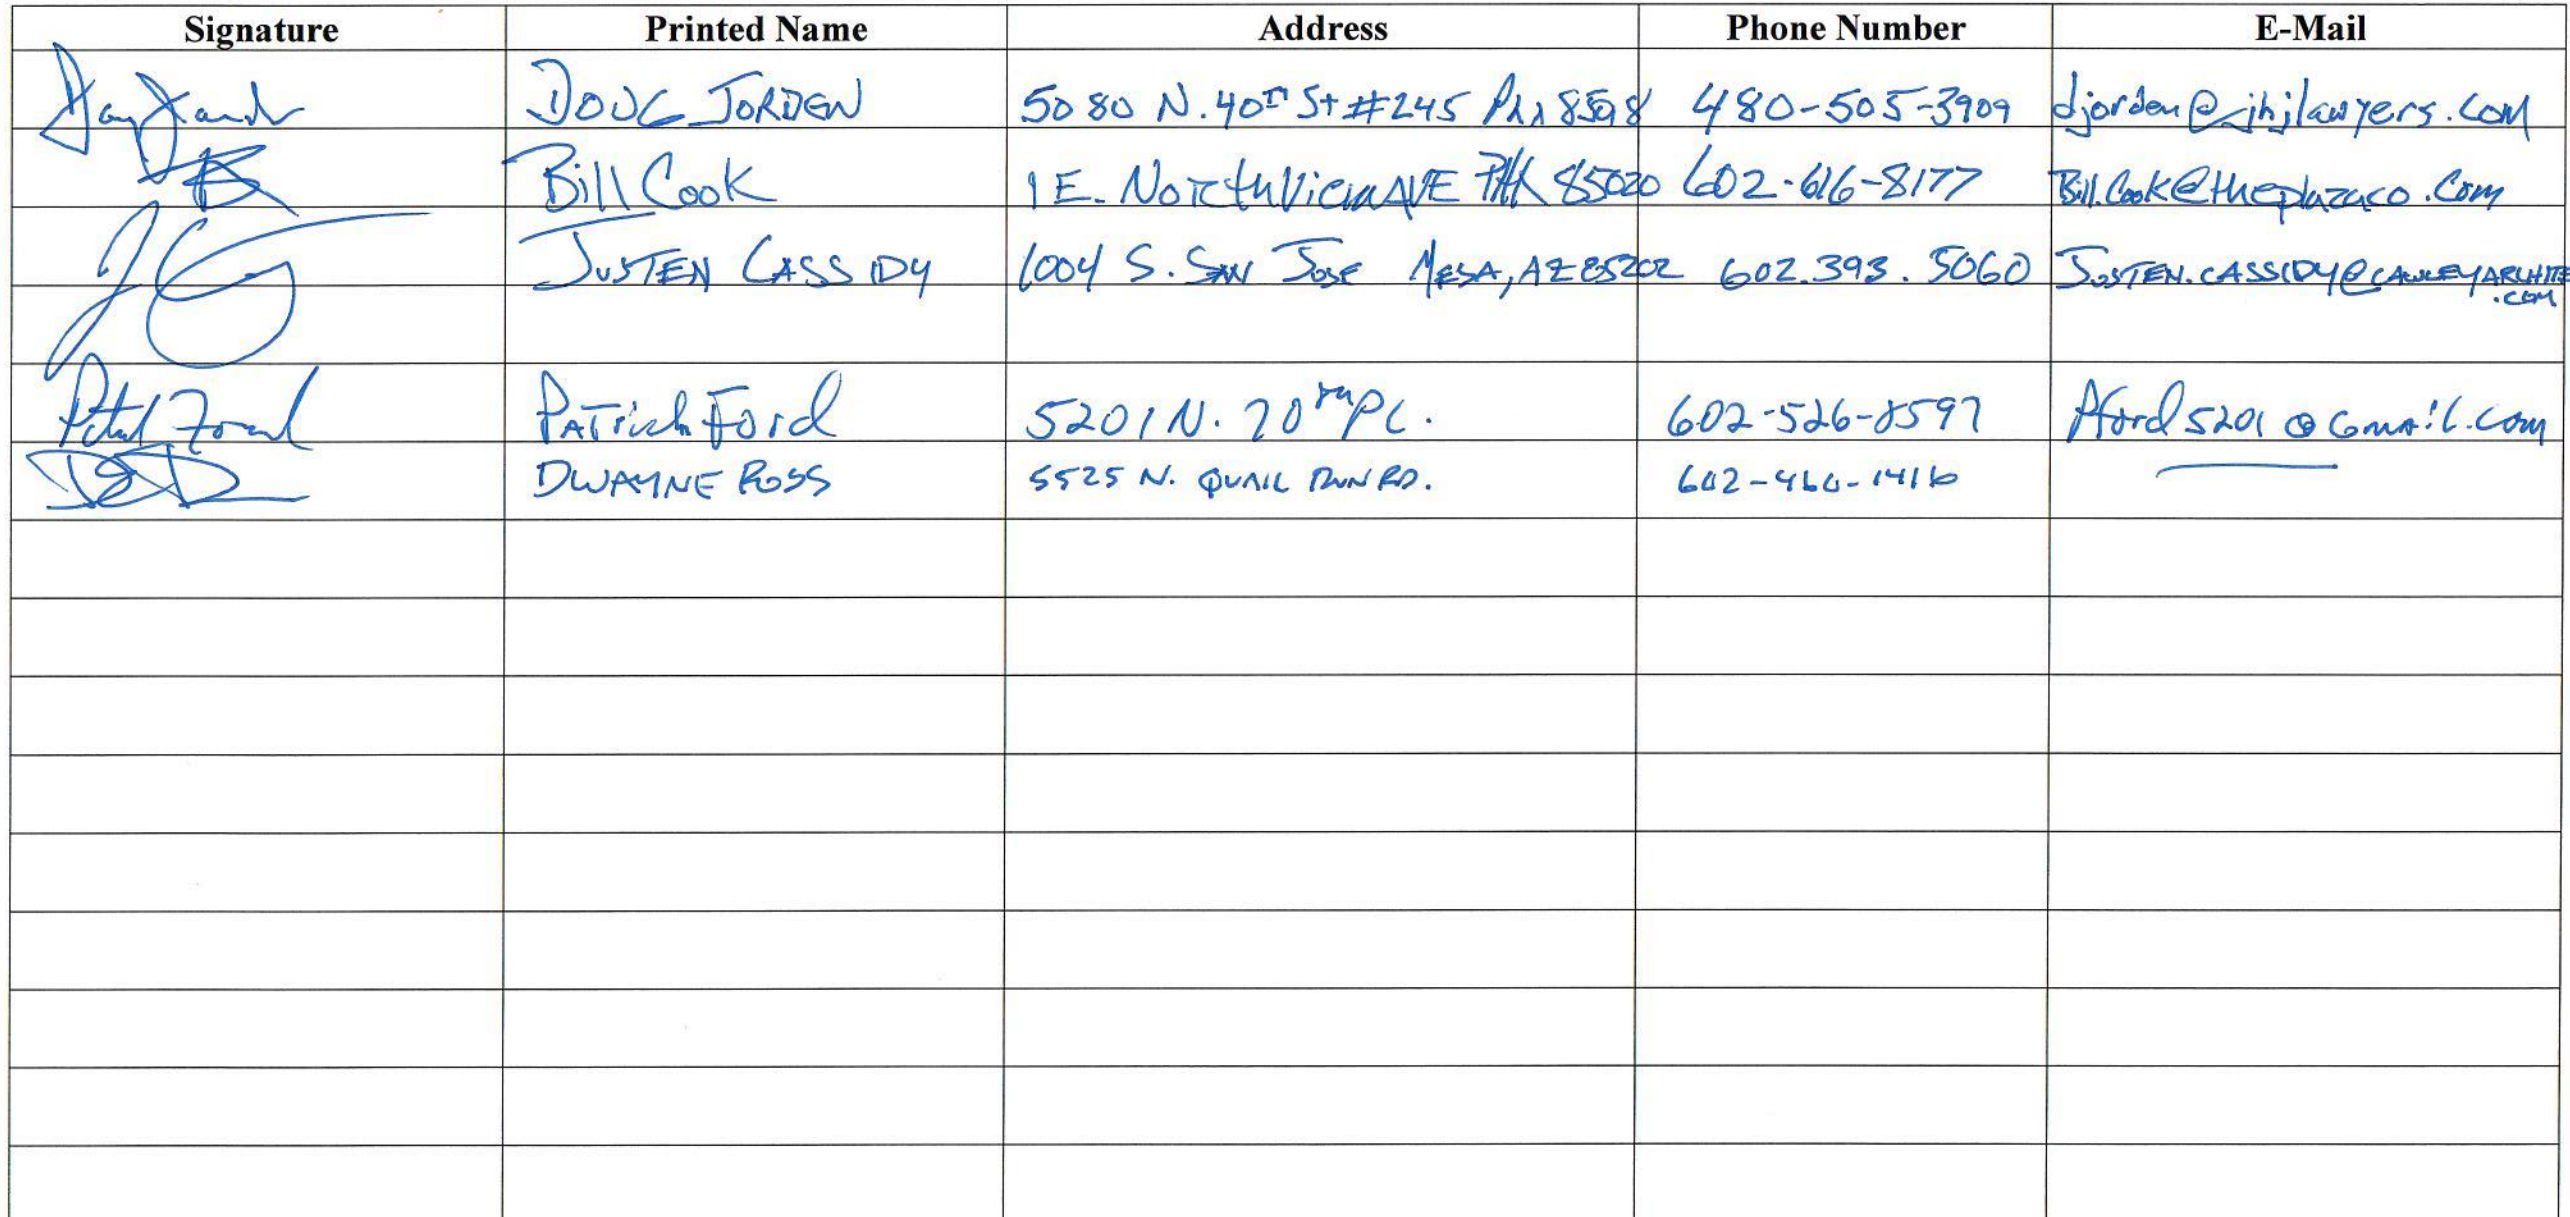 Signature Printed Name Address Phone Number E-Mail
DOUG JORDEN 5080 N. 40th St #245 Phx 480-505-3909 djorden@jhjlawyers.com
Bill Cook 1 E. NorthView AVE PHX 85020 602-616-8177 Bill.Cook@theplazaco.com
JUSTEN CASSIDY 1004 S. SAN JOSE MESA, AZ 85202 602.393.5060 JUSTEN.CASSIDY@CAWLEYARCHITE
.COM
PATrick Ford 5201 N. 70th PL. 602-526-8597 Pford5201@Gmail.com
DWAYNE ROSS 5525 N. QUAIL RUN RD. 602-460-1416